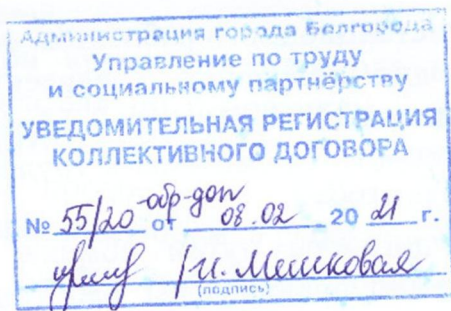 Администрация города Белгорода
Управление по труду
и социальному партнёрству
УВЕДОМИТЕЛЬНАЯ РЕГИСТРАЦИЯ
КОЛЛЕКТИВНОГО ДОГОВОРА
№ 55/20-обр-доп от 08.02 20 21 г.
/И. Мешковая
(подпись)